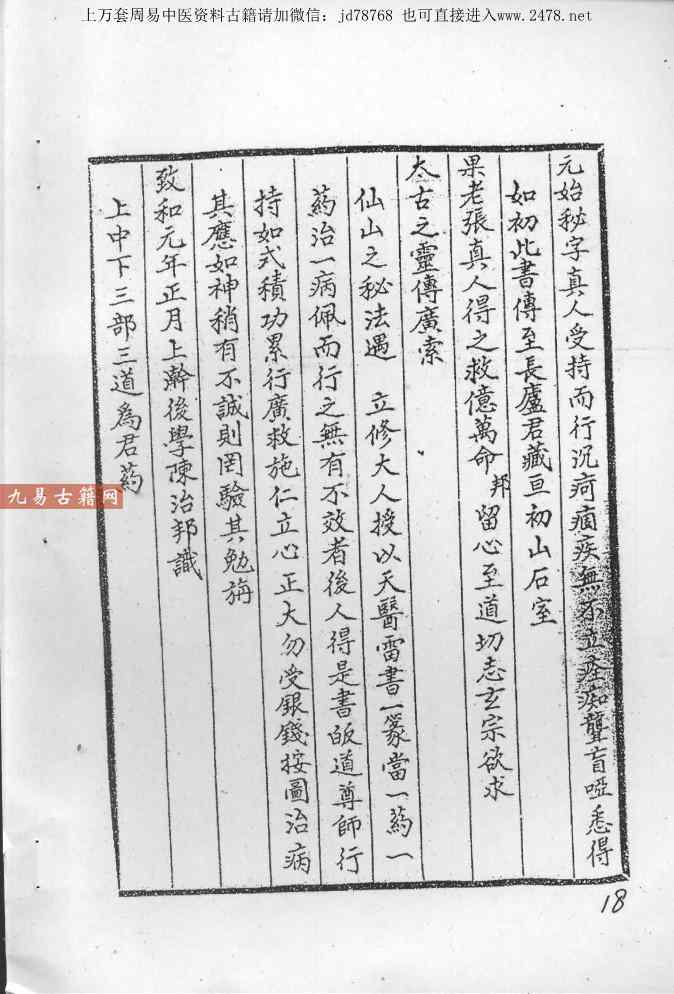 上万套周易中医资料古籍请加微信：jd78768 也可直接进入www.2478.net
元始秘字真人受持而行沉疴痼疾無不立痊痴聾盲啞悉得
如初此書傳至長廬君藏亘初山石室
果老張真人得之救億萬命邦留心至道切志玄宗欲求
太古之靈傳廣索
仙山之秘法遇 立修大人授以天醫雷書一篆當一葯一
葯治一病佩而行之無有不效者後人得是書皈道尊師行
持如式積功累行廣救施仁立心正大勿受銀錢按圖治病
其應如神稍有不誠則罔驗其勉旃
致和元年正月上澣後學陳治邦識
上中下三部三道爲君葯
九易古籍网
18